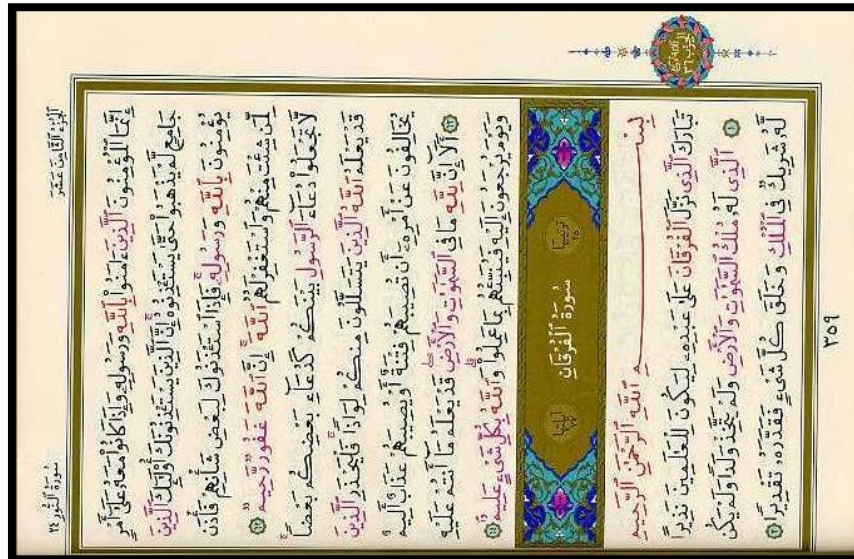 سُورَةُ النُّورِ ٢٤
الجُزْءُ الثَّامِنَ عَشَرَ
إِنَّمَا ٱلْمُؤْمِنُونَ ٱلَّذِينَ ءَامَنُوا۟ بِٱللَّهِ وَرَسُولِهِۦ وَإِذَا كَانُوا۟ مَعَهُۥ عَلَىٰٓ أَمْرٍ
جَامِعٍ لَّمْ يَذْهَبُوا۟ حَتَّىٰ يَسْتَـْٔذِنُوهُ ۚ إِنَّ ٱلَّذِينَ يَسْتَـْٔذِنُونَكَ أُو۟لَٰٓئِكَ ٱلَّذِينَ
يُؤْمِنُونَ بِٱللَّهِ وَرَسُولِهِۦ ۚ فَإِذَا ٱسْتَـْٔذَنُوكَ لِبَعْضِ شَأْنِهِمْ فَأْذَن
لِّمَن شِئْتَ مِنْهُمْ وَٱسْتَغْفِرْ لَهُمُ ٱللَّهَ ۚ إِنَّ ٱللَّهَ غَفُورٌ رَّحِيمٌ ٦٢
لَّا تَجْعَلُوا۟ دُعَآءَ ٱلرَّسُولِ بَيْنَكُمْ كَدُعَآءِ بَعْضِكُم بَعْضًا ۚ
قَدْ يَعْلَمُ ٱللَّهُ ٱلَّذِينَ يَتَسَلَّلُونَ مِنكُمْ لِوَاذًا ۚ فَلْيَحْذَرِ ٱلَّذِينَ
يُخَالِفُونَ عَنْ أَمْرِهِۦٓ أَن تُصِيبَهُمْ فِتْنَةٌ أَوْ يُصِيبَهُمْ عَذَابٌ أَلِيمٌ
٦٣ أَلَآ إِنَّ لِلَّهِ مَا فِى ٱلسَّمَٰوَٰتِ وَٱلْأَرْضِ ۖ قَدْ يَعْلَمُ مَآ أَنتُمْ عَلَيْهِ
وَيَوْمَ يُرْجَعُونَ إِلَيْهِ فَيُنَبِّئُهُم بِمَا عَمِلُوا۟ ۗ وَٱللَّهُ بِكُلِّ شَىْءٍ عَلِيمٌ ٦٤
ترتيبها ٢٥ سُورَةُ ٱلْفُرْقَانِ آياتها ٧٧
بِسْمِ ٱللَّهِ ٱلرَّحْمَٰنِ ٱلرَّحِيمِ
تَبَارَكَ ٱلَّذِى نَزَّلَ ٱلْفُرْقَانَ عَلَىٰ عَبْدِهِۦ لِيَكُونَ لِلْعَٰلَمِينَ نَذِيرًا
١ ٱلَّذِى لَهُۥ مُلْكُ ٱلسَّمَٰوَٰتِ وَٱلْأَرْضِ وَلَمْ يَتَّخِذْ وَلَدًا وَلَمْ يَكُن
لَّهُۥ شَرِيكٌ فِى ٱلْمُلْكِ وَخَلَقَ كُلَّ شَىْءٍ فَقَدَّرَهُۥ تَقْدِيرًا ٢
الحزب ٣٦
٣٥٩